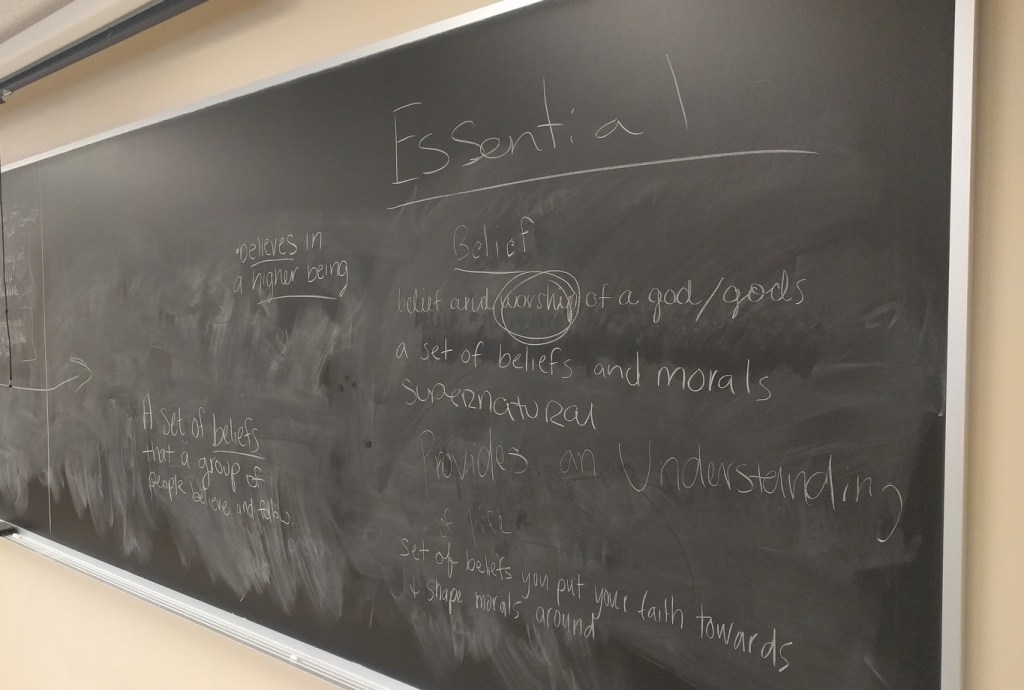 Essential
•believes in
a higher being
A set of beliefs
that a group of
people believe and follow
Belief
belief and worship of a god/gods
a set of beliefs and morals
supernatural
Provides an Understanding
of life
set of beliefs you put your faith towards
+ shape morals around